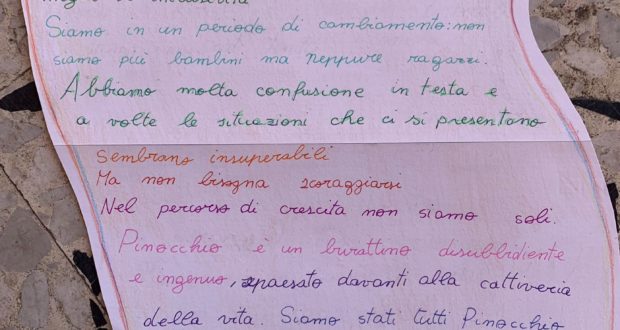 Siamo in un periodo di cambiamento: non
siamo più bambini ma neppure ragazzi.
Abbiamo molta confusione in testa e
a volte le situazioni che ci si presentano
sembrano insuperabili
Ma non bisogna scoraggiarsi
Nel percorso di crescita non siamo soli.
Pinocchio è un burattino disubbidiente
e ingenuo, spaesato davanti alla cattiveria
della vita. Siamo stati tutti Pinocchio